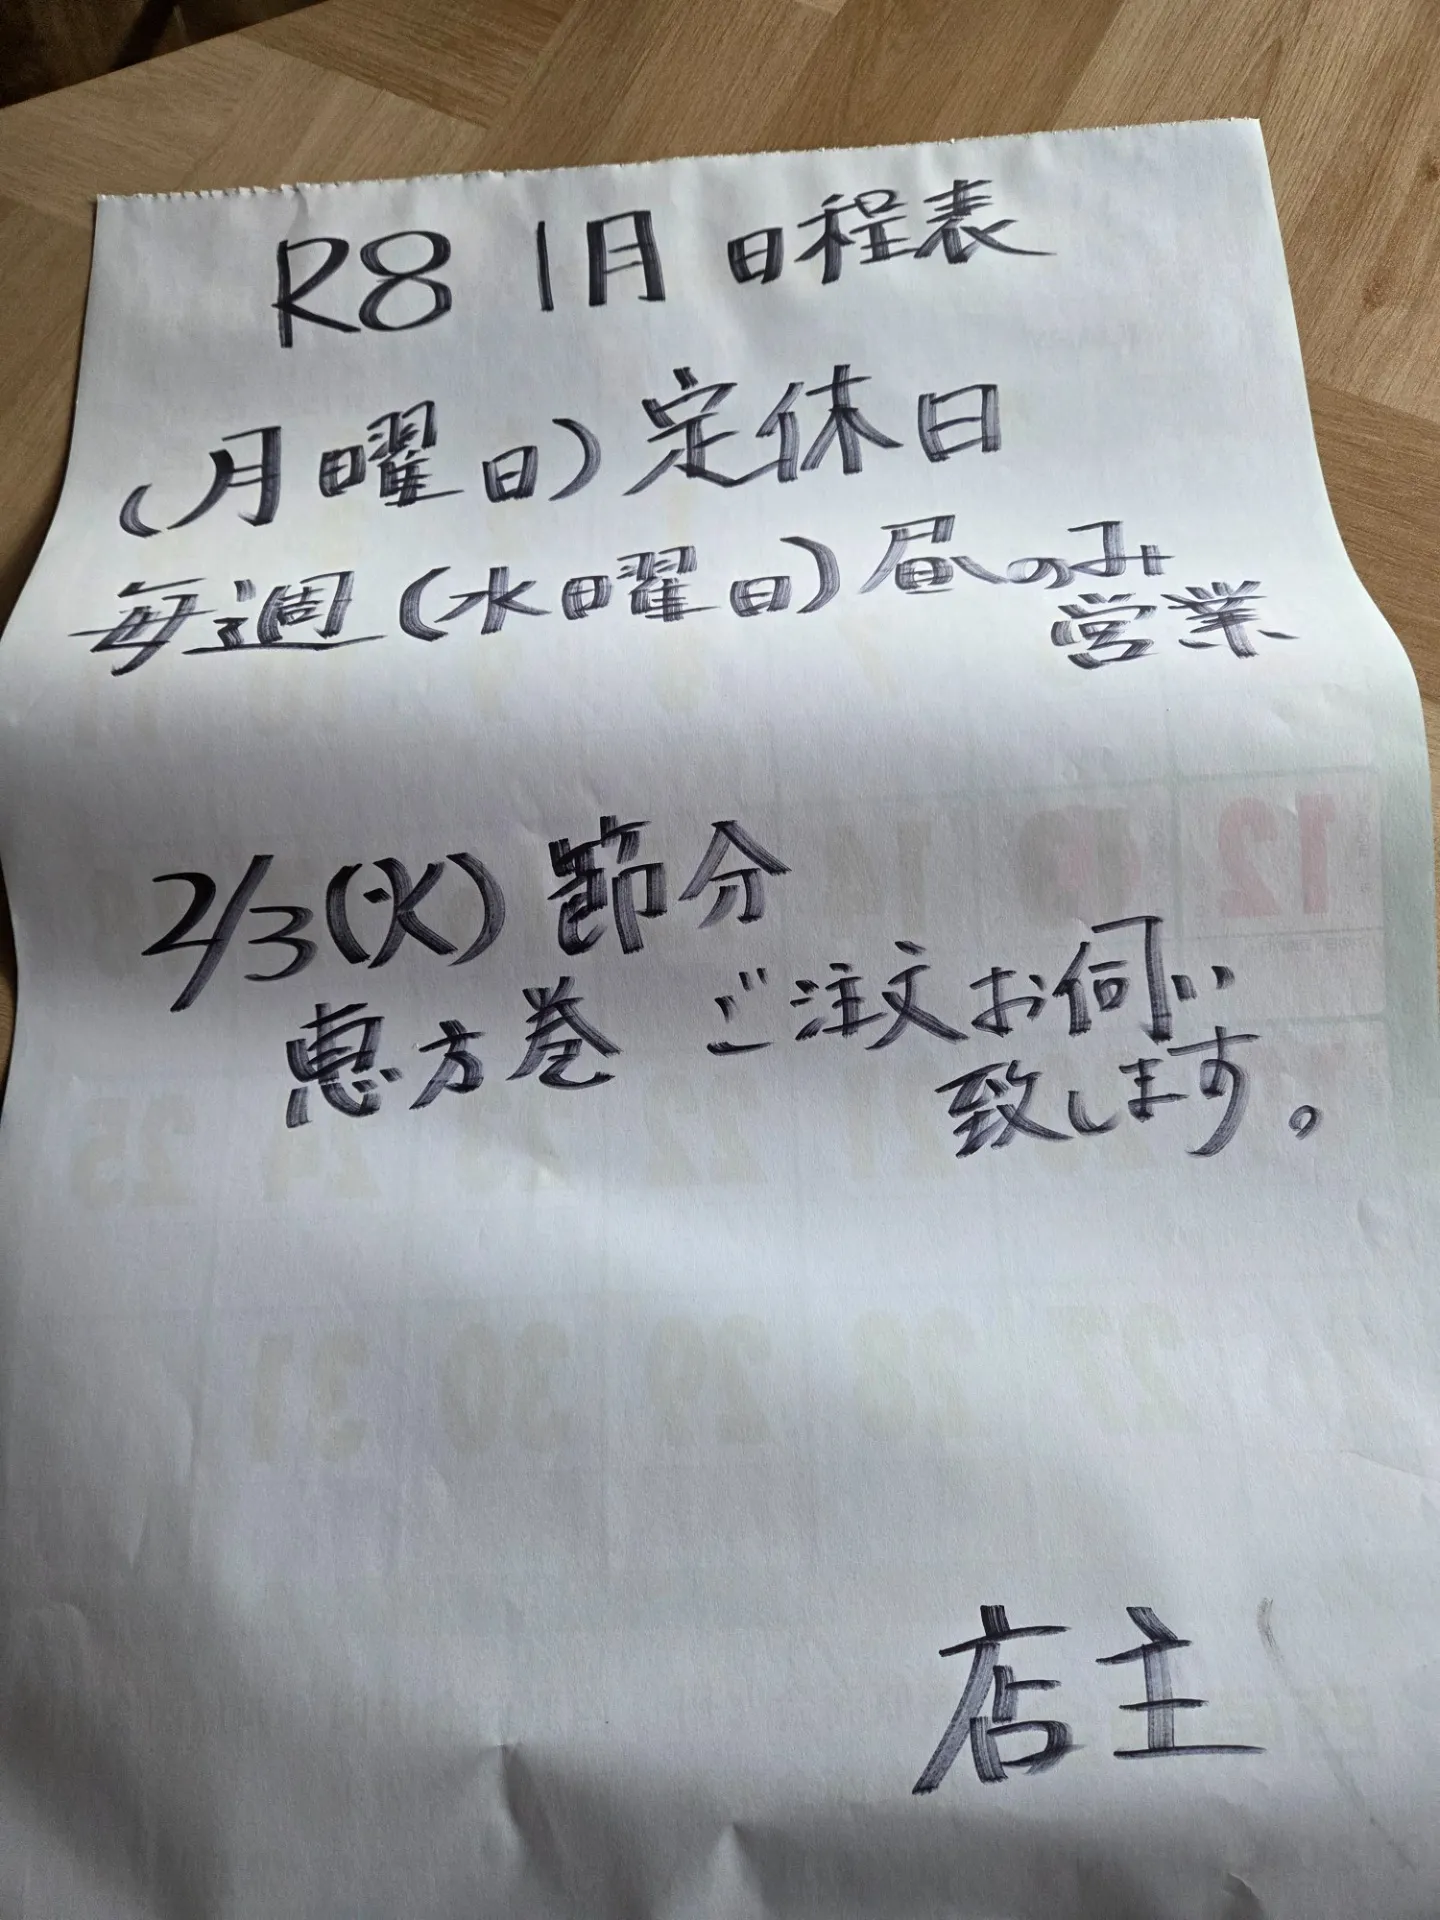 R8 1月 日程表
(月曜日)定休日
毎週(水曜日)昼のみ
営業
2/3(火)節分
恵方巻 ご注文お伺い
致します。
店主
12
25
30 31